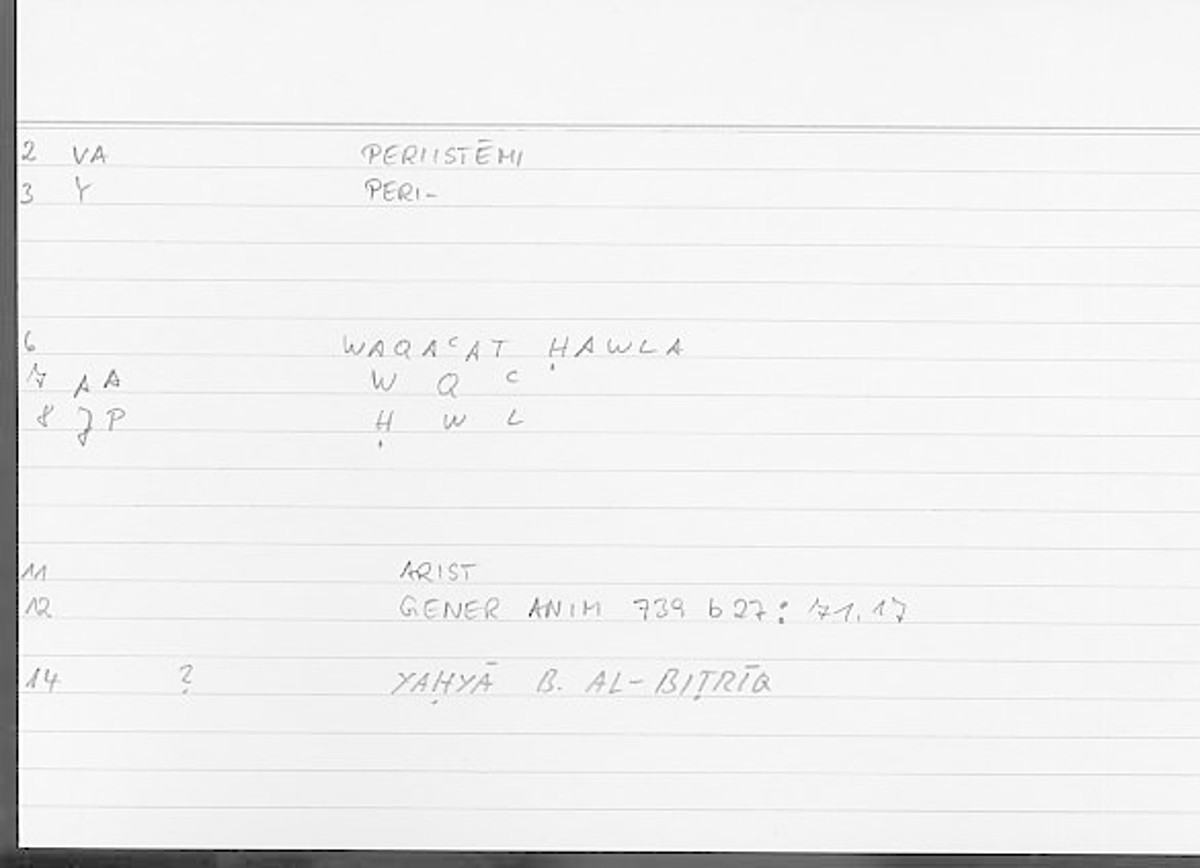 2 VA PERIISTĒMI
3 Y PERI-
6 WAQAʿAT ḤAWLA
7 A A W Q ʿ
8 J P Ḥ W L
11 ARIST
12 GENER ANIM 739 b 27: 71.17
14 ? YAḤYĀ B. AL-BIṬRĪQ